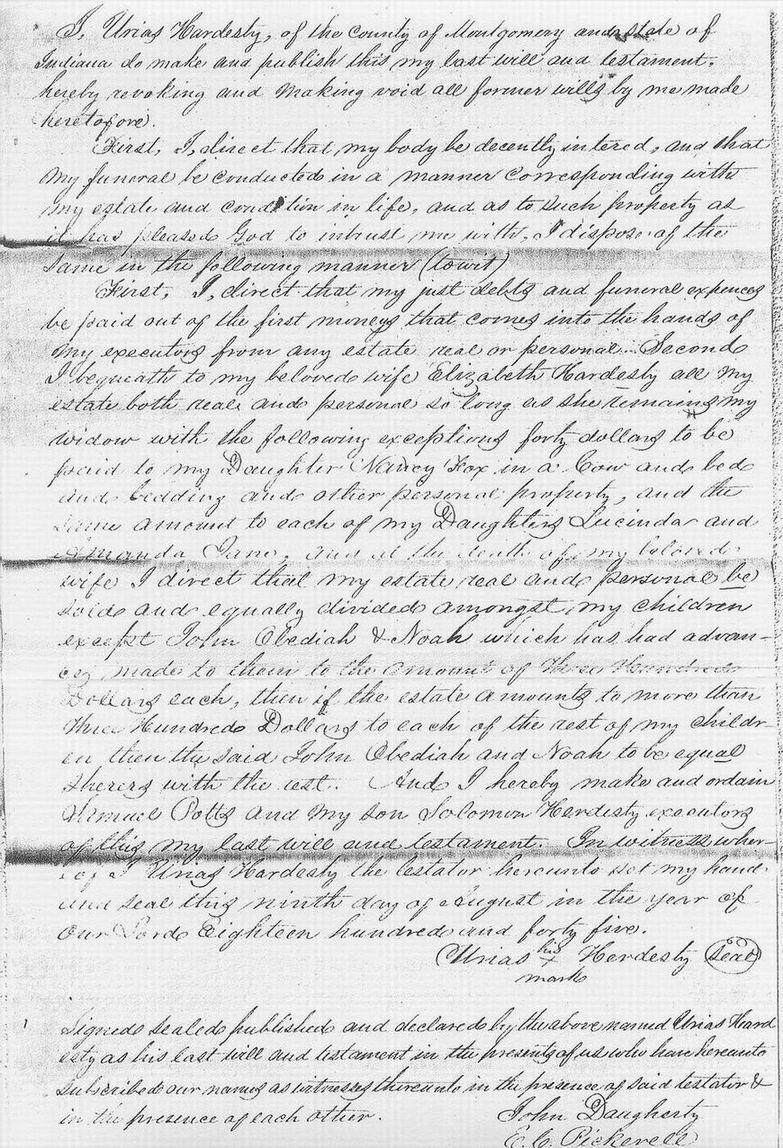 I, Urias Hardesty, of the County of Montgomery and state of
Indiana do make and publish this my last will and testament,
hereby revoking and making void all former wills by me made
heretofore.
First, I, direct that my body be decently intered, and that
my funeral be conducted in a manner corresponding with
my estate and condition in life, and as to such property as
it has pleased God to intrust me with, I dispose of the
same in the following manner (towit)
First, I, direct that my just debts and funeral expences
be paid out of the first moneys that comes into the hands of
my executors from any estate real or personal. Second
I bequeath to my beloved wife Elizabeth Hardesty all my
estate both real and personal so long as she remains my
widow with the following exceptions forty dollars to be
paid to my Daughter Nancy Fox in a Cow and bed
and bedding and other personal property, and the
same amount to each of my Daughters Lucinda and
Amanda Jane, and at the death of my beloved
wife I direct that my estate real and personal be
sold and equally divided amongst my children
except John Obediah & Noah which has had advan-
ces made to them to the amount of Three Hundred
Dollars each, then if the estate amounts to more than
three Hundred Dollars to each of the rest of my childr
en then the said John Obediah and Noah to be equal
sherers with the rest. And I hereby make and ordain
Samuel Potts and my son Solomon Hardesty executors
of this my last will and testament. In witness wher-
eof I Urias Hardesty the testator hereunto set my hand
and seal this ninth day of August in the year of
our Lord Eighteen hundred and forty five.
Urias his x mark Hardesty (seal)
Signed sealed published and declared by the above named Urias Hard
esty as his last will and testament in the presents of us who have hereunto
subscribed our names as witnesses thereunto in the presence of said testator &
in the presence of each other.
John Daugherty
E. C. Pickerell